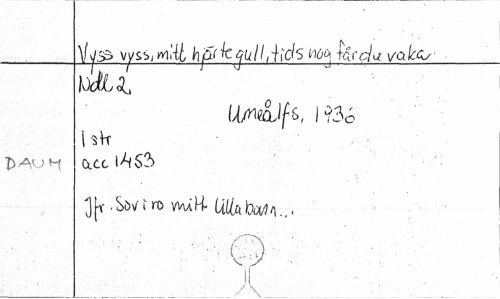 Vyss vyss, mitt hjärtegull, tids nog får du vaka
Ndl 2
Umeålfs, 1936
1 str
DAUM acc 1453
Jfr. Sov i ro mitt lilla barn...